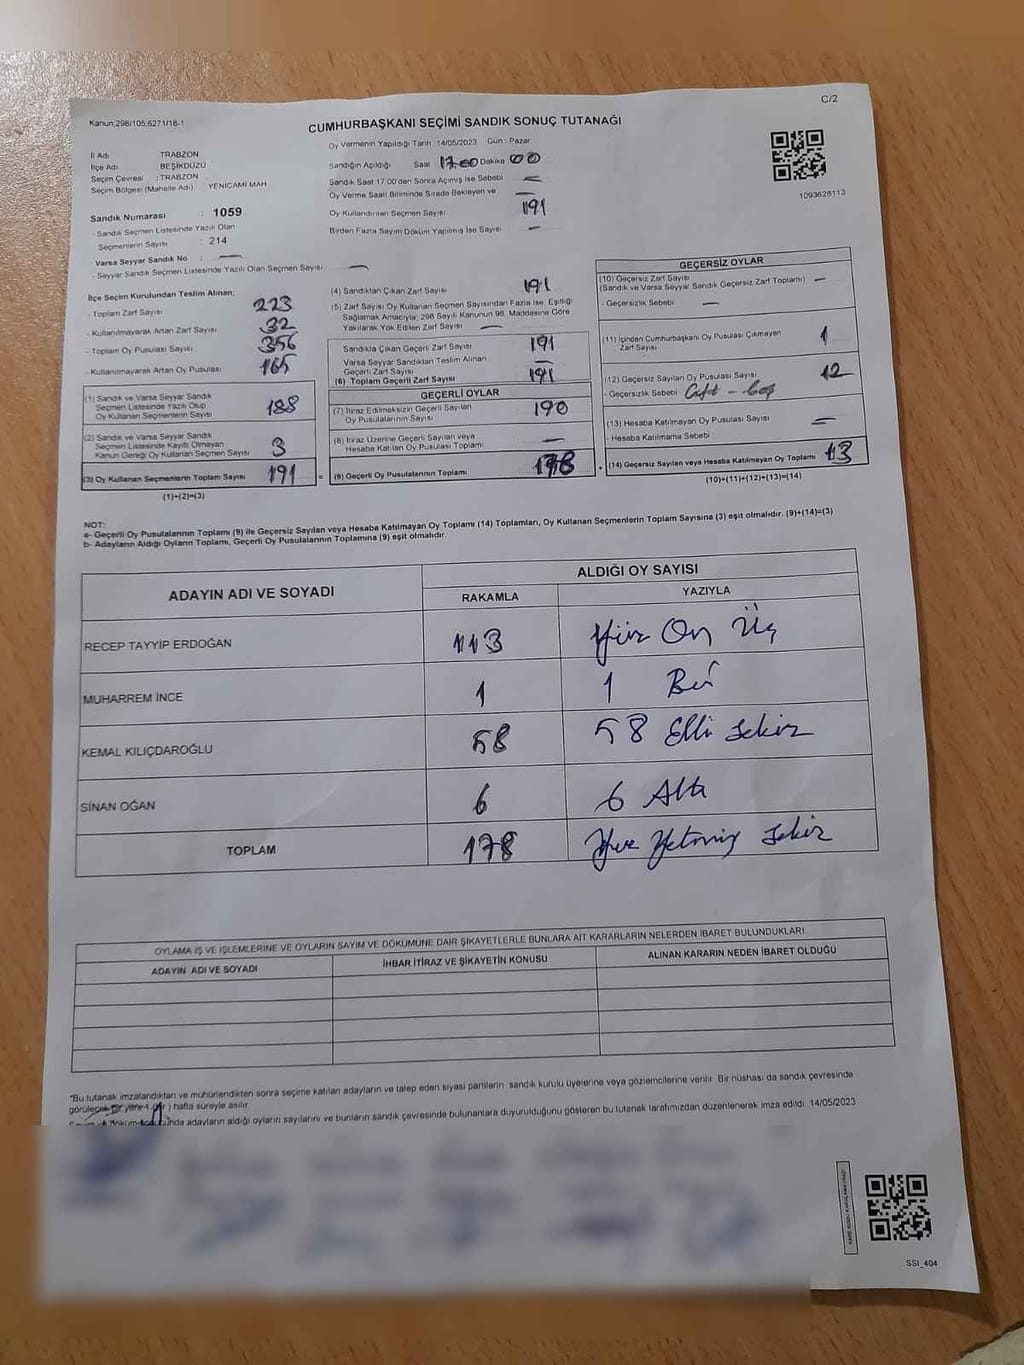 C/2
Kanun:298/105,6271/18-1
CUMHURBAŞKANI SEÇİMİ SANDIK SONUÇ TUTANAĞI
İl Adı TRABZON
İlçe Adı BEŞİKDÜZÜ
Seçim Çevresi : TRABZON
Seçim Bölgesi (Mahalle Adı) YENİCAMİ MAH
Sandık Numarası : 1059
- Sandık Seçmen Listesinde Yazılı Olan
Seçmenlerin Sayısı : 214
Varsa Seyyar Sandık No : —
- Seyyar Sandık Listesinde Yazılı Olan Seçmen Sayısı —
Oy Vermenin Yapıldığı Tarih: 14/05/2023 Gün : Pazar
Sandığın Açıldığı Saat 17:00 Dakika 00
Sandık Saat 17:00'den Sonra Açımış İse Sebebi —
Oy Verme Saati Bitiminde Sırada Bekleyen ve —
Oy Kullandırılan Seçmen Sayısı 191
Birden Fazla Sayım Döküm Yapılmış İse Sayısı —
1093628113
İlçe Seçim Kurulundan Teslim Alınan;
- Toplam Zarf Sayısı 223
- Kullanılmayarak Artan Zarf Sayısı 32
- Toplam Oy Pusulası Sayısı 356
- Kullanılmayarak Artan Oy Pusulası 165
(1) Sandık ve Varsa Seyyar Sandık
Seçmen Listesinde Yazılı Olup
Oy Kullanan Seçmenlerin Sayısı 188
(2) Sandık ve Varsa Seyyar Sandık
Seçmen Listesinde Kayıtlı Olmayan
Kanun Gereği Oy Kullanan Seçmen Sayısı 3
(3) Oy Kullanan Seçmenlerin Toplam Sayısı 191
(1)+(2)=(3)
(4) Sandıktan Çıkan Zarf Sayısı 191
(5) Zarf Sayısı Oy Kullanan Seçmen Sayısından Fazla İse, Eşitliği
Sağlamak Amacıyla; 298 Sayılı Kanunun 98. Maddesine Göre
Yakılarak Yok Edilen Zarf Sayısı —
Sandıkta Çıkan Geçerli Zarf Sayısı 191
Varsa Seyyar Sandıktan Teslim Alınan
Geçerli Zarf Sayısı —
(6) Toplam Geçerli Zarf Sayısı 191
GEÇERLİ OYLAR
(7) İtiraz Edilmeksizin Geçerli Sayılan
Oy Pusulalarının Sayısı 190
(8) İtiraz Üzerine Geçerli Sayılan veya
Hesaba Katılan Oy Pusulası Toplamı —
= (9) Geçerli Oy Pusulalarının Toplamı 178
GEÇERSİZ OYLAR
(10) Geçersiz Zarf Sayısı
(Sandık ve Varsa Seyyar Sandık Geçersiz Zarf Toplamı) —
- Geçersizlik Sebebi —
(11) İçinden Cumhurbaşkanı Oy Pusulası Çıkmayan
Zarf Sayısı 1
(12) Geçersiz Sayılan Oy Pusulası Sayısı 12
- Geçersizlik Sebebi Çift - boş
(13) Hesaba Katılmayan Oy Pusulası Sayısı —
- Hesaba Katılmama Sebebi
+ (14) Geçersiz Sayılan veya Hesaba Katılmayan Oy Toplamı 13
(10)+(11)+(12)+(13)=(14)
NOT:
a- Geçerli Oy Pusulalarının Toplamı (9) ile Geçersiz Sayılan veya Hesaba Katılmayan Oy Toplamı (14) Toplamları, Oy Kullanan Seçmenlerin Toplam Sayısına (3) eşit olmalıdır. (9)+(14)=(3)
b- Adayların Aldığı Oyların Toplamı, Geçerli Oy Pusulalarının Toplamına (9) eşit olmalıdır.
ADAYIN ADI VE SOYADI ALDIĞI OY SAYISI
RAKAMLA YAZIYLA
RECEP TAYYİP ERDOĞAN 113 Yüz On Üç
MUHARREM İNCE 1 1 Bir
KEMAL KILIÇDAROĞLU 58 58 Elli Sekiz
SİNAN OĞAN 6 6 Altı
TOPLAM 178 Yüz Yetmiş Sekiz
OYLAMA İŞ VE İŞLEMLERİNE VE OYLARIN SAYIM VE DÖKÜMÜNE DAİR ŞİKAYETLERLE BUNLARA AİT KARARLARIN NELERDEN İBARET BULUNDUKLARI
ADAYIN ADI VE SOYADI İHBAR İTİRAZ VE ŞİKAYETİN KONUSU ALINAN KARARIN NEDEN İBARET OLDUĞU
*Bu tutanak imzalandıktan ve mühürlendikten sonra seçime katılan adayların ve talep eden siyasi partilerin sandık kurulu üyelerine veya gözlemcilerine verilir. Bir nüshası da sandık çevresinde
görülecek bir yere 1 (bir) hafta süreyle asılır.
adayların aldığı oyların sayılarını ve bunların sandık çevresinde bulunanlara duyurulduğunu gösteren bu tutanak tarafımızdan düzenlenerek imza edildi. 14/05/2023
SSI_404